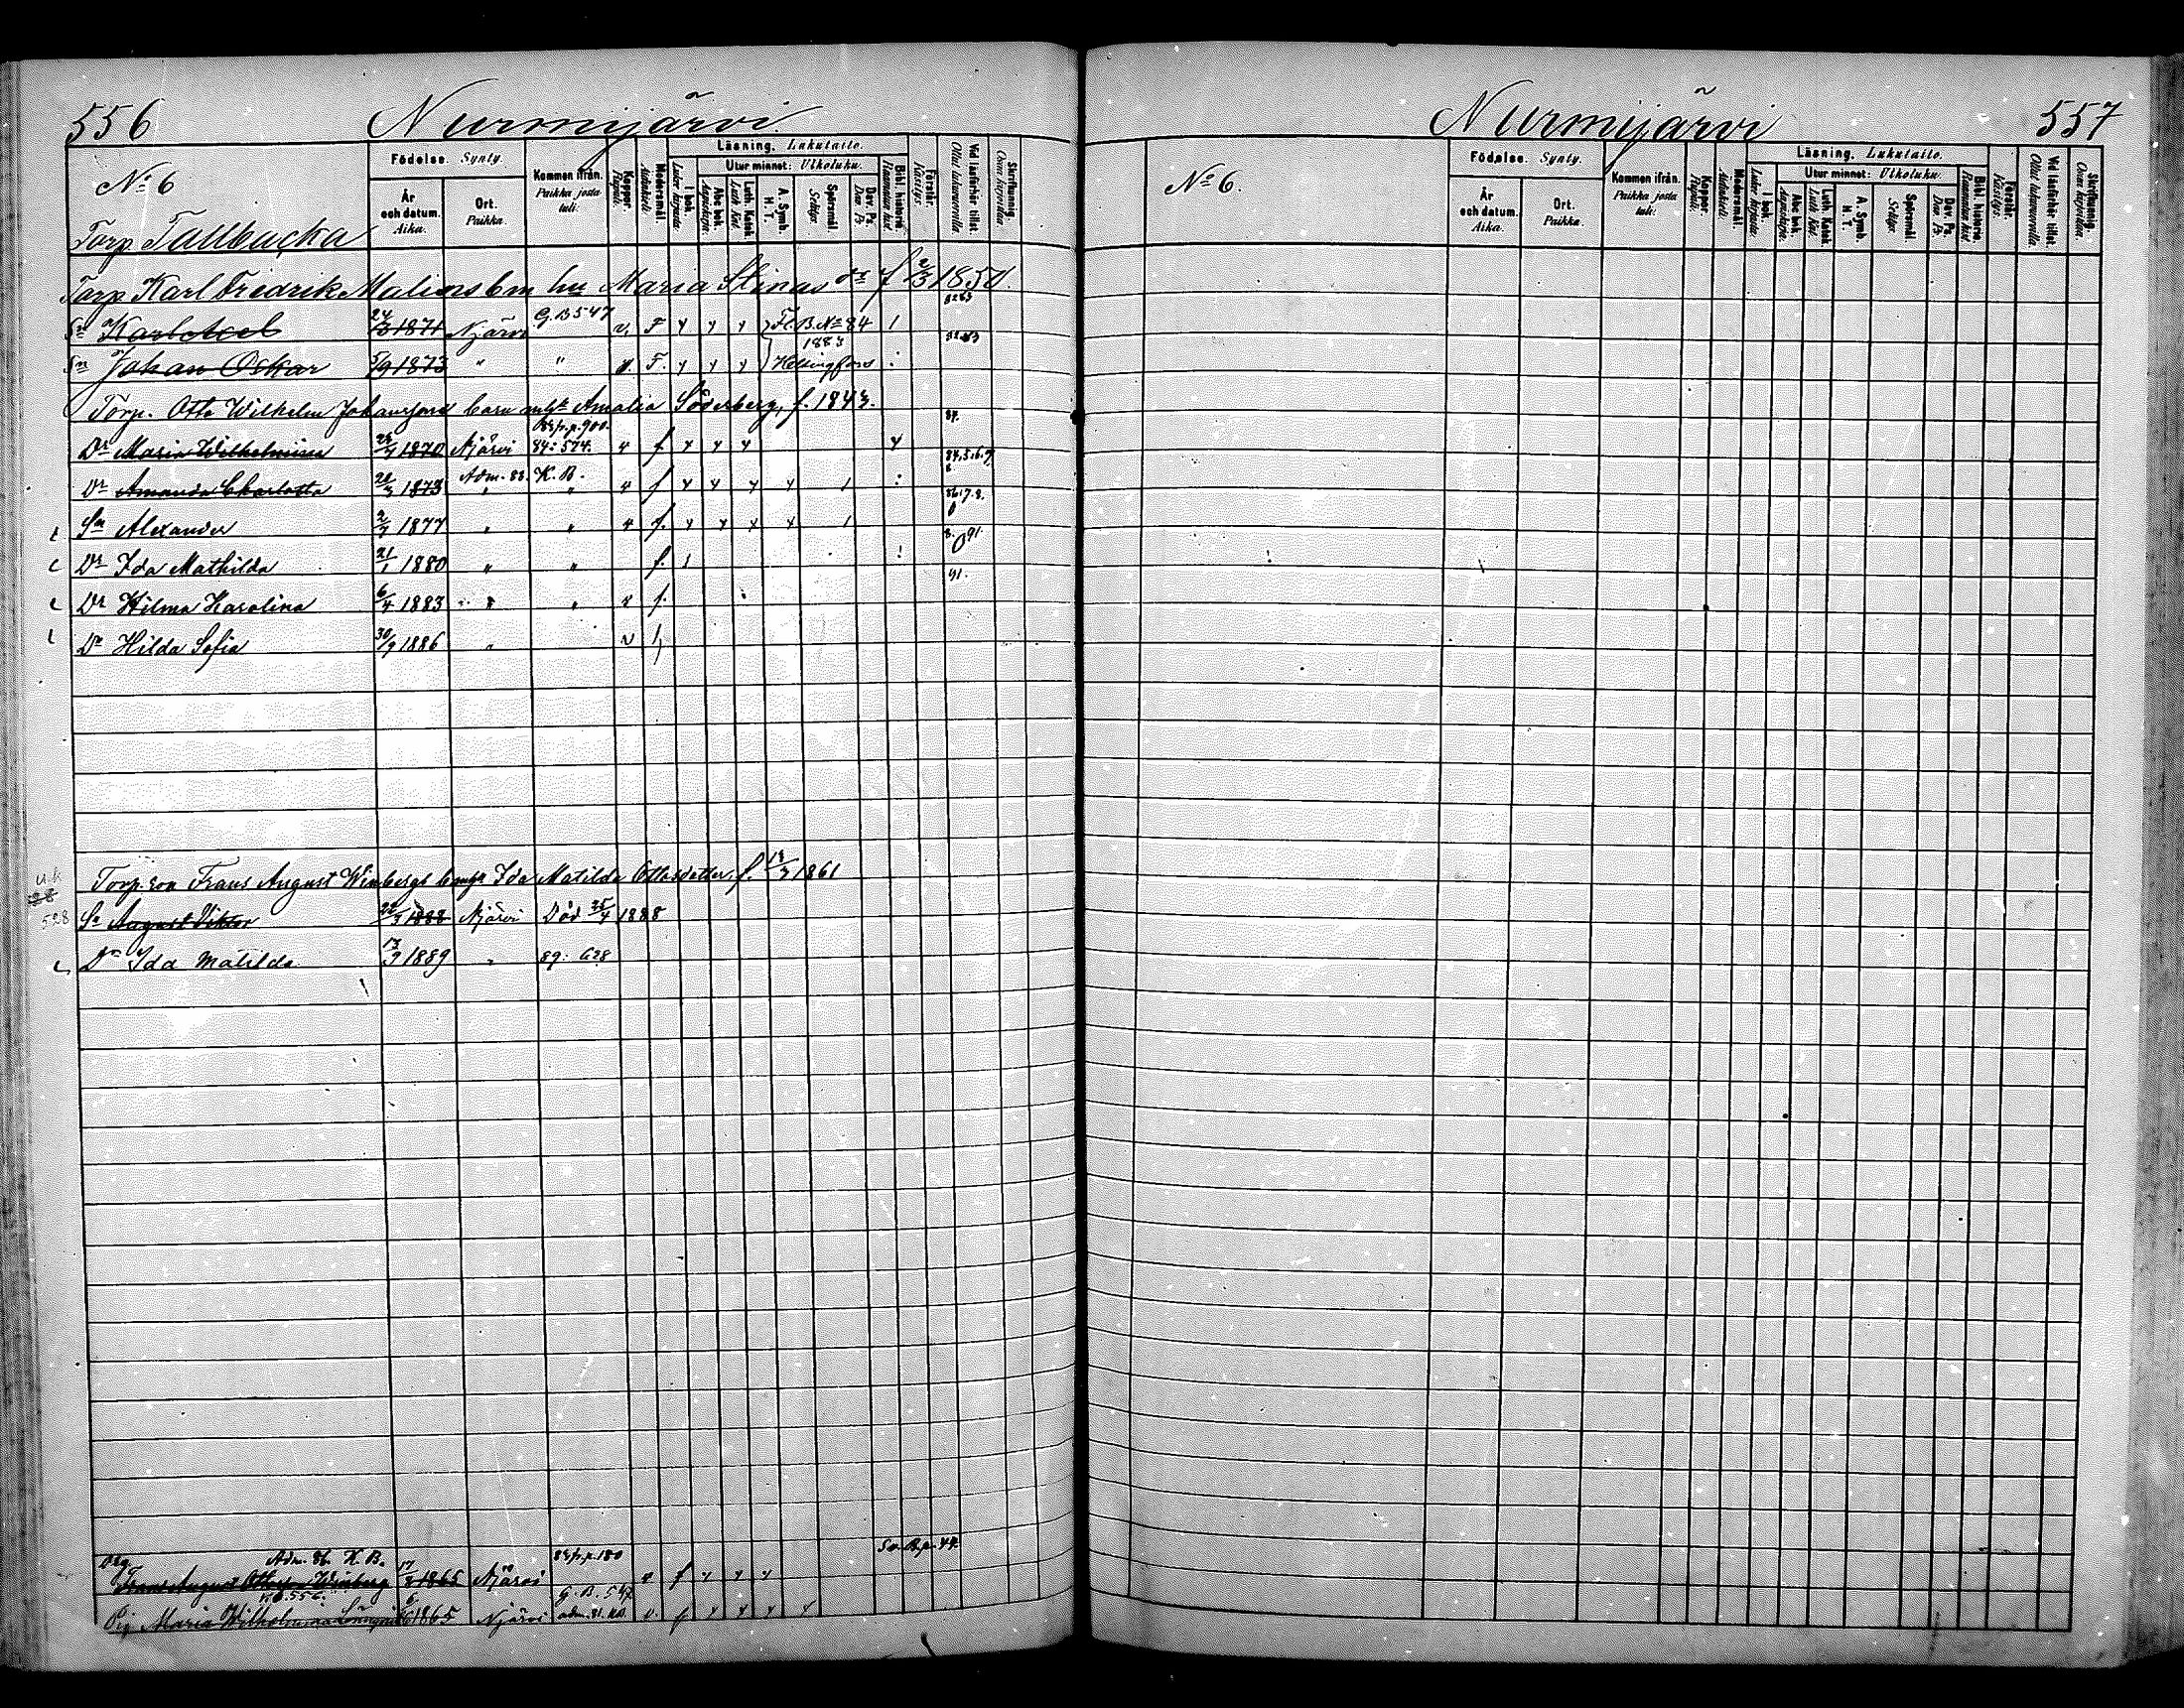 556 Nurmijärvi
No 6
Torp Tallbacka
Födelse. Synty.
År och datum. Aika.
Ort. Paikka.
Kommen ifrån. Paikka josta tuli:
Koppor. Rupuli.
Modersmål. Äidinkieli.
Läsning. Lukutaito.
I bok. Luku kirjasta
Utur minnet: Ulkoluku.
Abc bok. Aapiskirja.
Luth. Katek. Luth. Kat.
A. Symb. H. T.
Spörsmål. Selitys.
Dav. Ps. Dav. Ps.
Bibl. historia. Raamatun hist.
Förstår. Käsitys.
Vid läsförhör tillst. Ollut lukuvuorolla
Skriftkunnig. Osaa kirjoittaa.
Torp. Karl Fredrik Malms bm hu Maria Stinas dr f 2/3 1850.
Sn Karl Axel 24/3 1871 Njärvi G.B 547 v, F y y y Fl.B. No 84 1 8283
Sn Johan Oskar 5/9 1873 " " v. F. y y y 1883 Helsingfors 82.83
Torp. Otto Wilhelm Johanssons barn m/h Amalia Söderberg, f. 1843.
Dr Maria Wilhelmiina 1870 Njärvi 84: 574. v f y y y y 84.
Dr Amanda Charlotta 28/3 1873 Adm. 88. K. B. " v f y y y y 1 84,5.6.7
Sn Alexander 2/7 1877 " " v f. y y y y 1 86 7.8.
Dr Ida Mathilda 21/1 1880 " " f. 1 8. 91.
Dr Hilma Karolina 6/4 1883 " " v f. 91.
Dr Hilda Sofia 30/9 1886 " v f
Torp. son Frans August Winbergs bm/h Ida Matilda Ottosdotter, f. 13/3 1861
Sn August Viktor 22/3 1888 Njärvi Död 25/4 1888
Dr Ida Matilda 13/7 1889 " 89: 628
Drg. Adm. 86. K. B.
Frans August Ottosson Winberg 17/3 1865 Njärvi v f y y y
Pig Maria Wilhelmina Lönnqvist 1865 Njärvi G. B. 547 adm. 81. KB. v. f y y y y
Nurmijärvi 557
No 6.
Födelse. Synty.
År och datum. Aika.
Ort. Paikka.
Kommen ifrån. Paikka josta tuli:
Koppor. Rupuli.
Modersmål. Äidinkieli.
Läsning. Lukutaito.
I bok. Luku kirjasta
Utur minnet: Ulkoluku.
Abc bok. Aapiskirja.
Luth. Katek. Luth. Kat.
A. Symb. H. T.
Spörsmål. Selitys.
Dav. Ps. Dav. Ps.
Bibl. historia. Raamatun hist.
Förstår. Käsitys.
Vid läsförhör tillst. Ollut lukuvuorolla
Skriftkunnig. Osaa kirjoittaa.